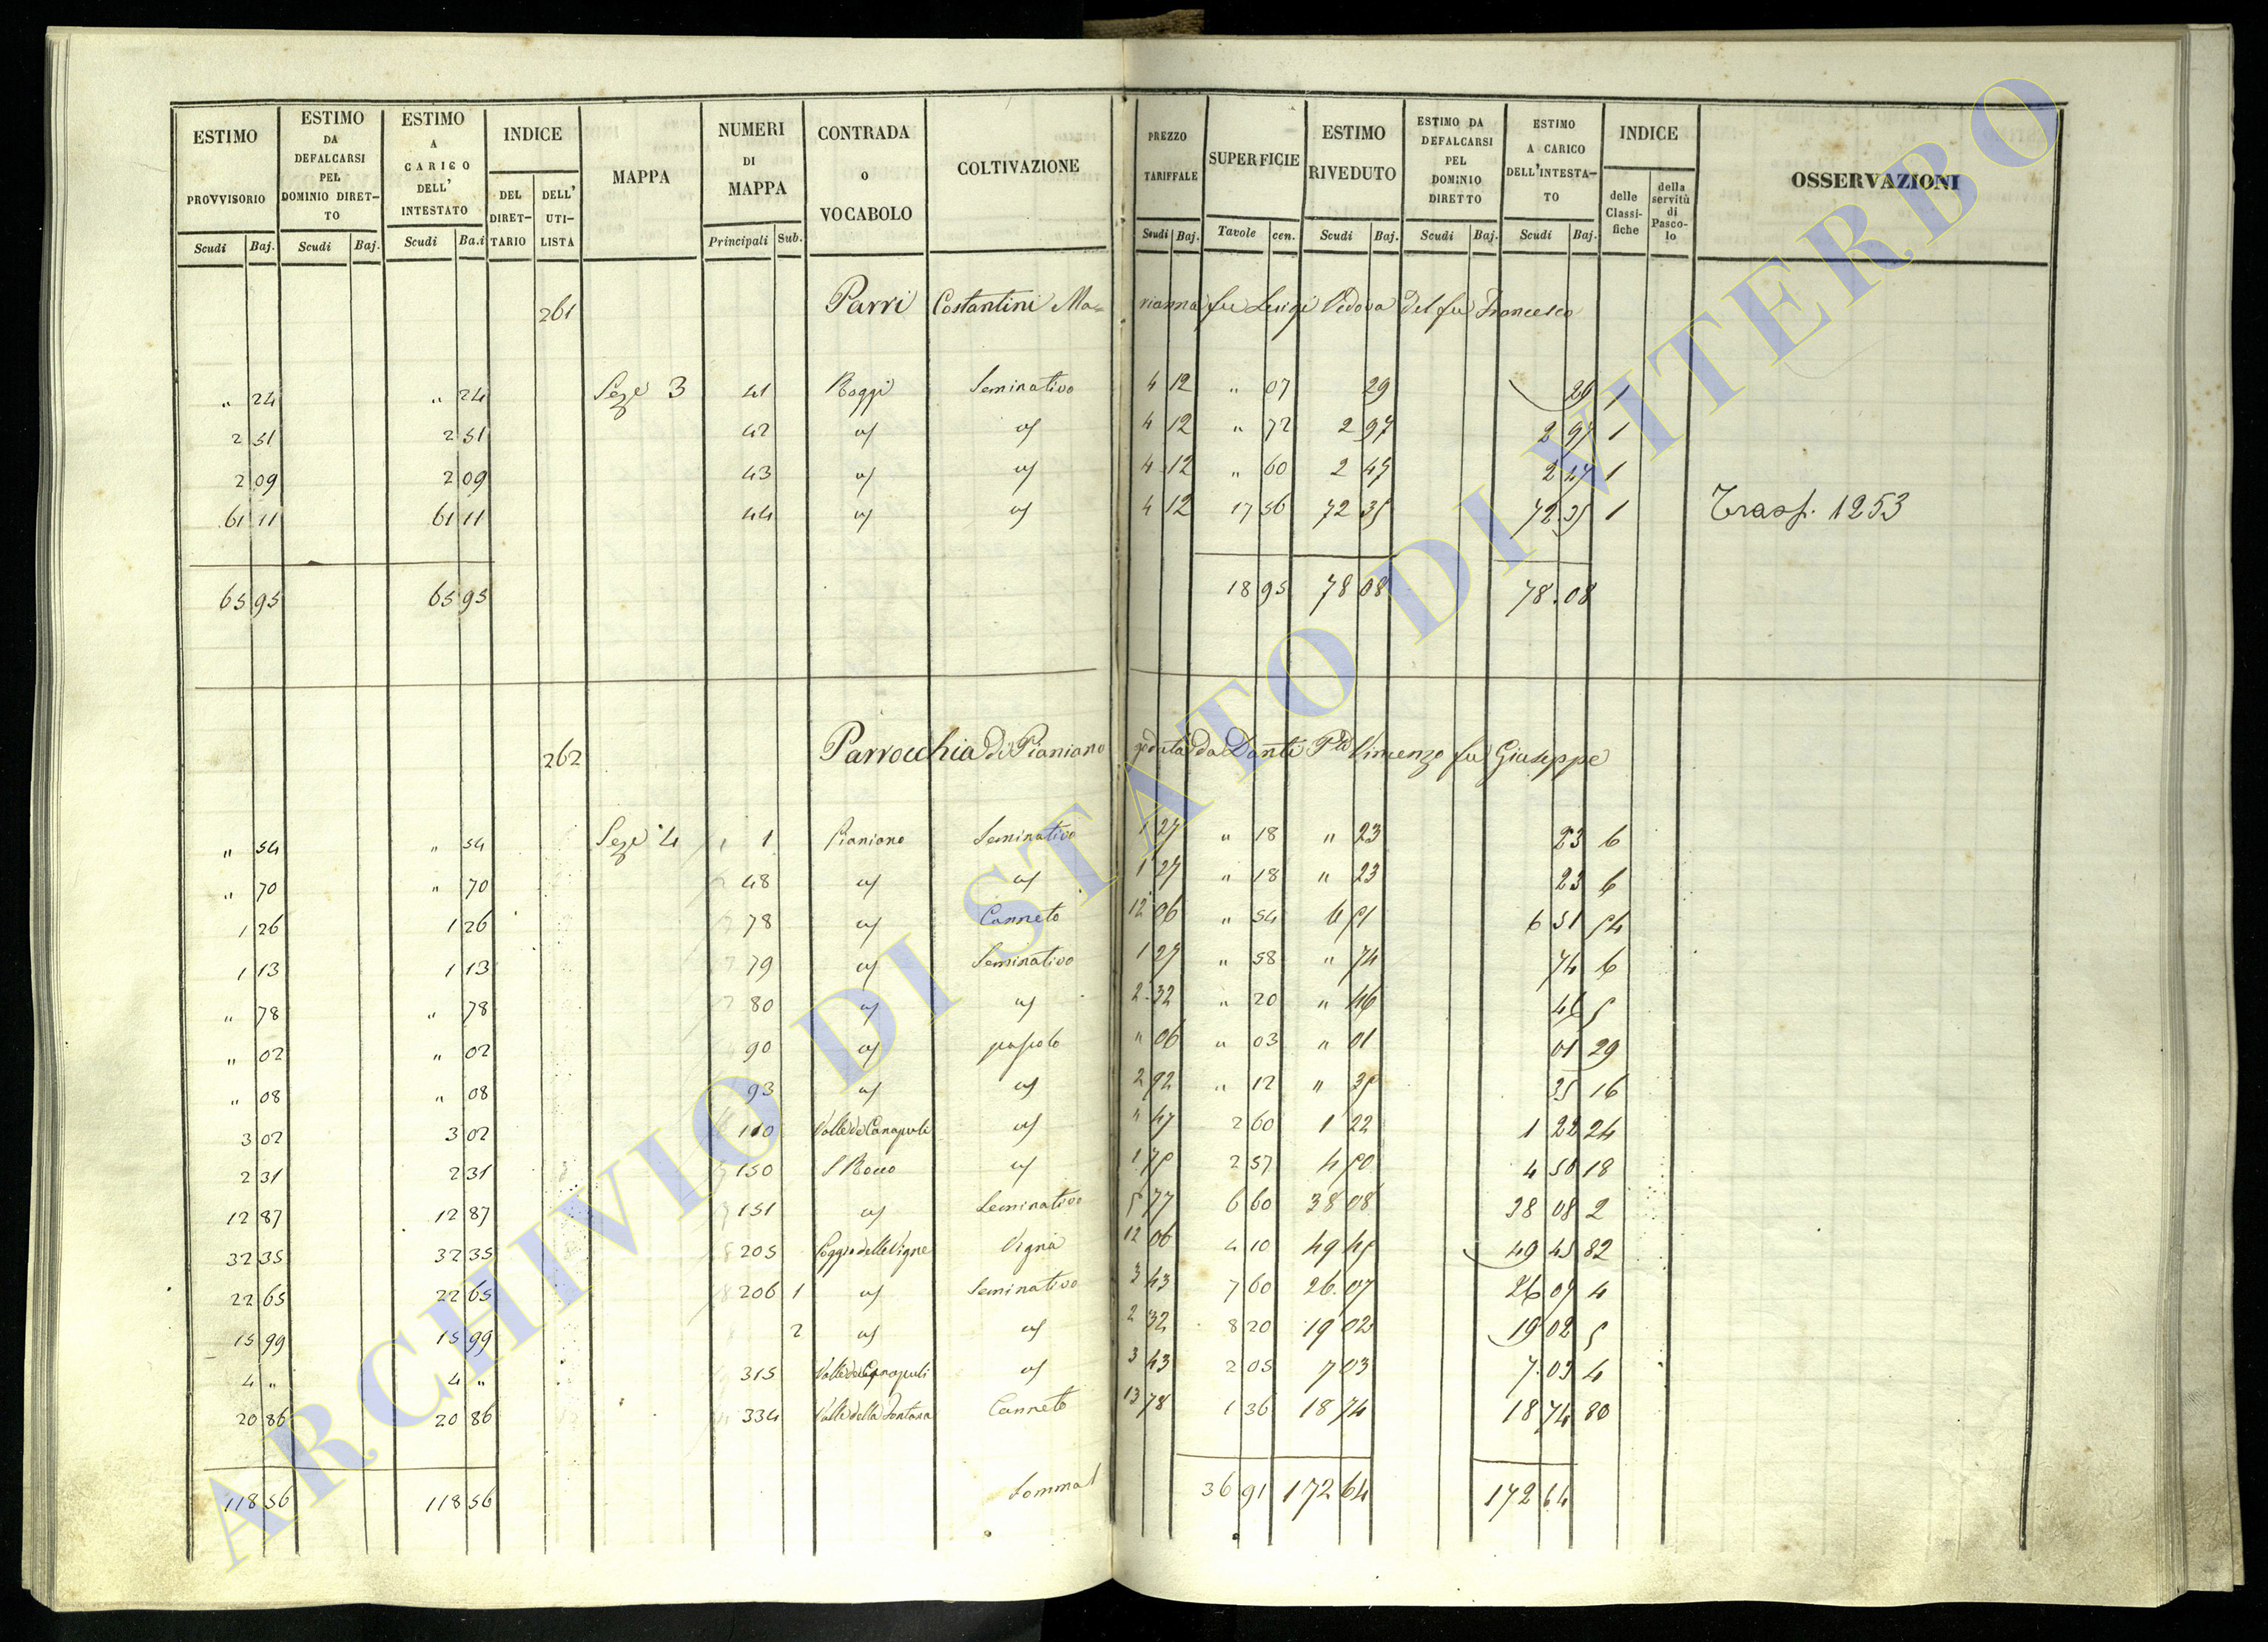 ESTIMO PROVVISORIO Scudi Baj. | ESTIMO DA DEFALCARSI PEL DOMINIO DIRETTO Scudi Baj. | ESTIMO A CARICO DELL' INTESTATO Scudi Ba.i | INDICE DEL DIRETTARIO DELL' UTILISTA | MAPPA | NUMERI DI MAPPA Principali Sub. | CONTRADA O VOCABOLO | COLTIVAZIONE | PREZZO TARIFFALE Scudi Baj. | SUPERFICIE Tavole cen. | ESTIMO RIVEDUTO Scudi Baj. | ESTIMO DA DEFALCARSI PEL DOMINIO DIRETTO Scudi Baj. | ESTIMO A CARICO DELL'INTESTATO Scudi Baj. | INDICE delle Classifiche della servitù di Pascolo | OSSERVAZIONI
261 Parri Costantini Marianna fu Luigi Vedova del fu Francesco
" 24 " 24 Sez.e 3 41 Roggi Seminativo 4 12 " 07 29 29 1
2 51 2 51 42 id id 4 12 " 72 2 97 2 97 1
2 09 2 09 43 id id 4 12 " 60 2 47 2 47 1
61 11 61 11 44 id id 4 12 17 56 72 35 72 35 1 Trasp. 1253
65 95 65 95 18 95 78 08 78.08
262 Parrocchia di Pianiano goduta da Danti Vincenzo fu Giuseppe
" 54 " 54 Sez.e 4 1 Pianiano Seminativo 1 27 " 18 " 23 23 6
" 70 " 70 48 id id 1 27 " 18 " 23 23 6
1 26 1 26 78 id Canneto 12 06 " 54 6 51 6 51 84
1 13 1 13 79 id Seminativo 1 27 " 58 " 74 74 6
" 78 " 78 80 id id 2.32 " 20 " 46 46 5
" 02 " 02 90 id pascolo " 06 " 03 " 01 01 29
" 08 " 08 93 id id 2 92 " 12 " 35 35 16
3 02 3 02 110 Valle de Canapuli id " 47 2 60 1 22 1 22 24
2 31 2 31 150 S Rocco id 1 75 2 57 4 50 4 50 18
12 87 12 87 151 id Seminativo 5 77 6 60 38 08 38 08 2
32 35 32 35 205 Poggio delle Vigne Vigna 12 06 4 10 49 45 49 45 82
22 65 22 65 206 1 id Seminativo 3 43 7 60 26.07 26 07 4
15 99 15 99 2 id id 2 32 8 20 19 02 19 02 5
4 " 4 " 315 Valle de Canapuli id 3 43 2 05 7 03 7.03 4
20 86 20 86 334 Valle della Fontana Canneto 13 78 1 36 18 74 18 74 80
118 56 118 56 Somma 36 91 172 64 172 64
ARCHIVIO DI STATO DI VITERBO